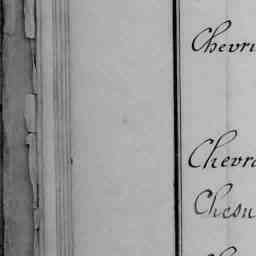 Chevri
Chevra
Chesn